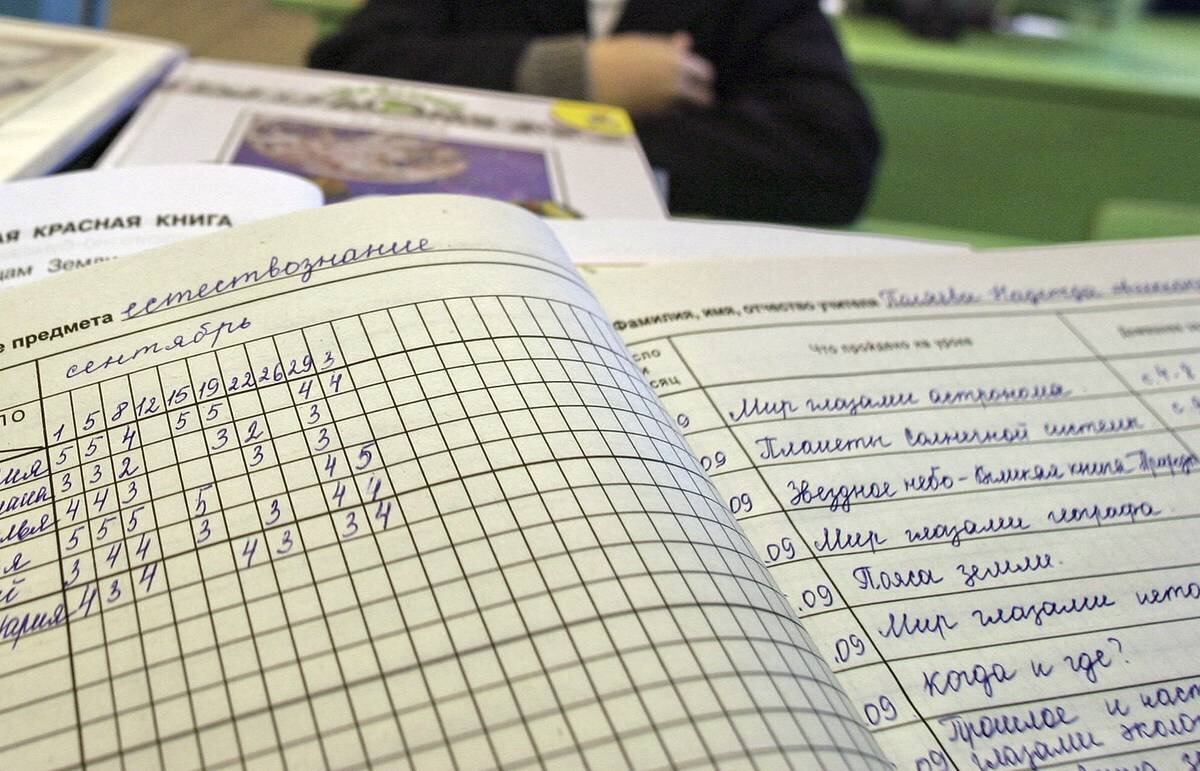 АЯ КРАСНАЯ КНИГА
цам Земли
е предмета естествознание
сентябрь
1 5 8 12 15 19 22 26 29 3
5 5 4 5 5 4 4
3 3 2 3 2 3
4 4 3 3 3
5 5 5 5 4 5
3 4 4 3 3 4 4
4 3 4 4 3 3 4
Фамилия, имя, отчество учителя Надежда
Что пройдено на уроке
09 Мир глазами астронома.
09 Планеты солнечной системы
09 Звездное небо - Великая книга Природы
.09 Мир глазами географа.
.09 Пояса земли.
.09 Мир глазами исто
09 Когда и где?
09 Прошлое и наст
глазами эколо